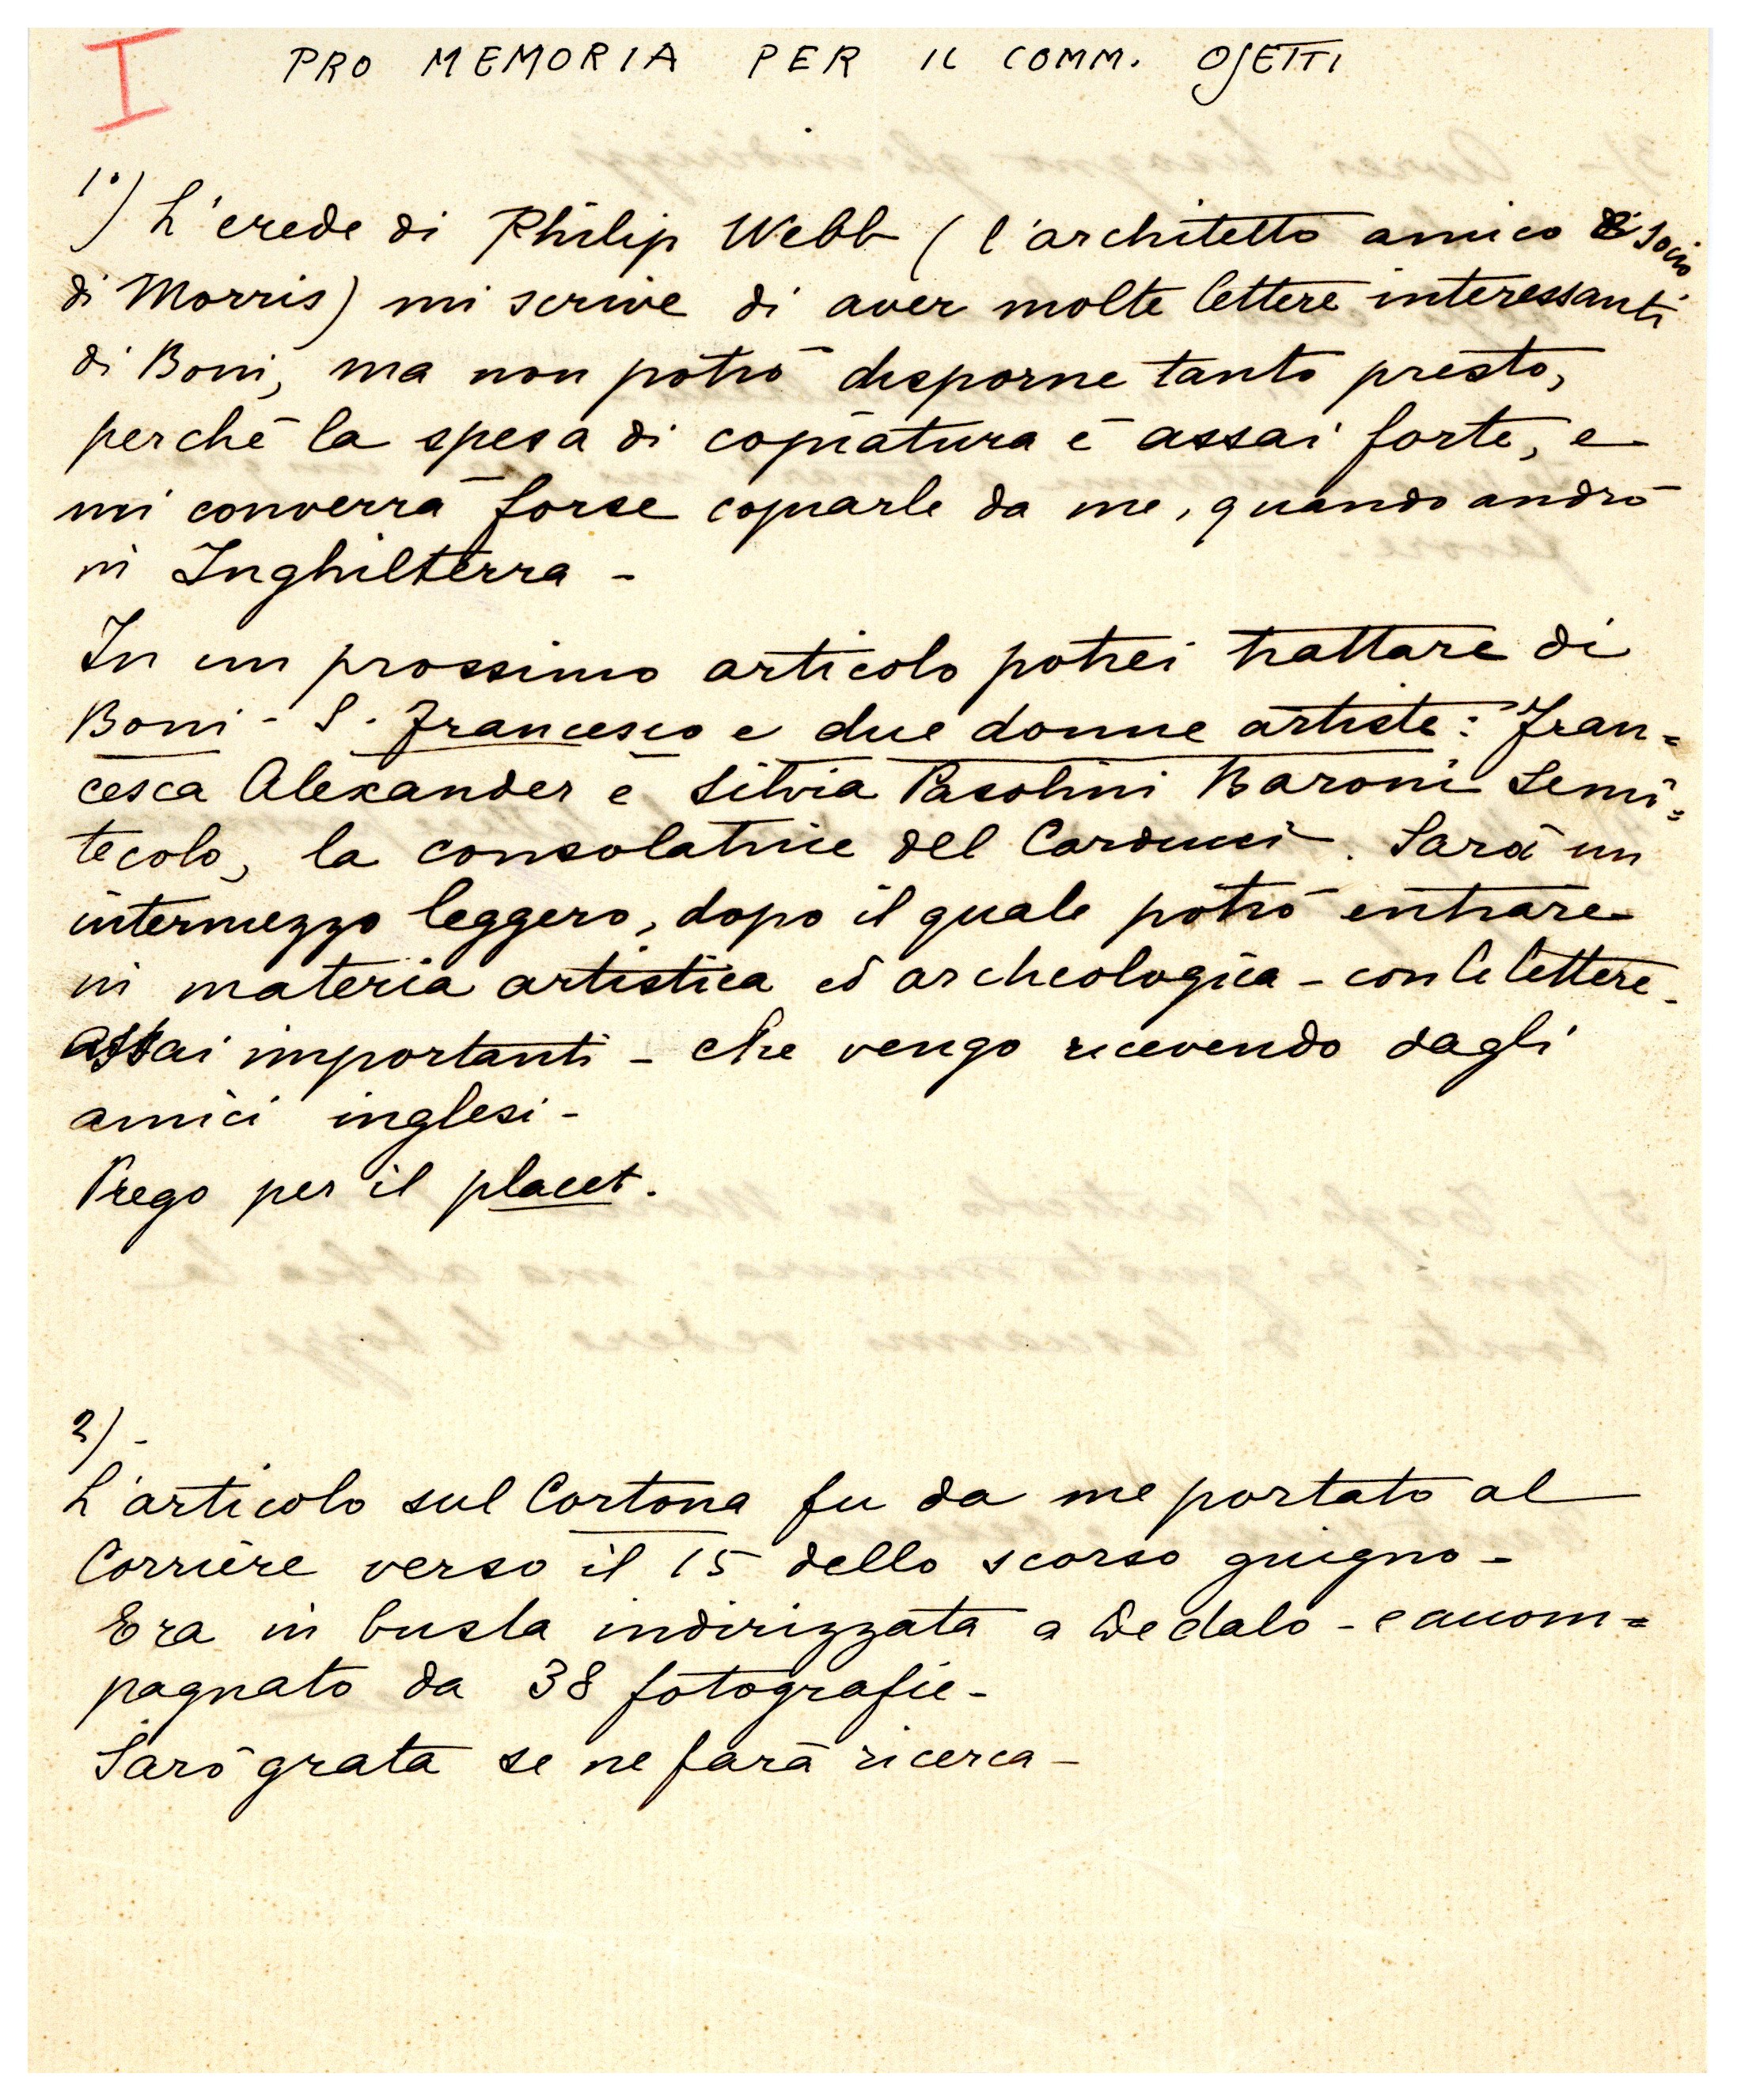 I
PRO MEMORIA PER IL COMM. OJETTI
1°) L'erede di Philip Webb (l'architetto amico e socio
di Morris) mi scrive di aver molte lettere interessanti
di Boni, ma non potrò disporne tanto presto,
perchè la spesa di copiatura è assai forte, e
mi converrà forse copiarle da me, quando andrò
in Inghilterra -
In un prossimo articolo potrei trattare di
Boni - S. Francesco e due donne artiste: Fran=
cesca Alexander e Silvia Pasolini Baroni Semi=
tecolo, la consolatrice del Carducci. Sarà un
intermezzo leggero, dopo il quale potrò entrare
in materia artistica ed archeologica - con le lettere -
assai importanti - che vengo ricevendo dagli
amici inglesi -
Prego per il placet.
2) -
L'articolo sul Cortona fu da me portato al
Corriere verso il 15 dello scorso giugno -
Era in busta indirizzata a Dedalo - e accom=
pagnato da 38 fotografie -
Sarò grata se ne farà ricerca -